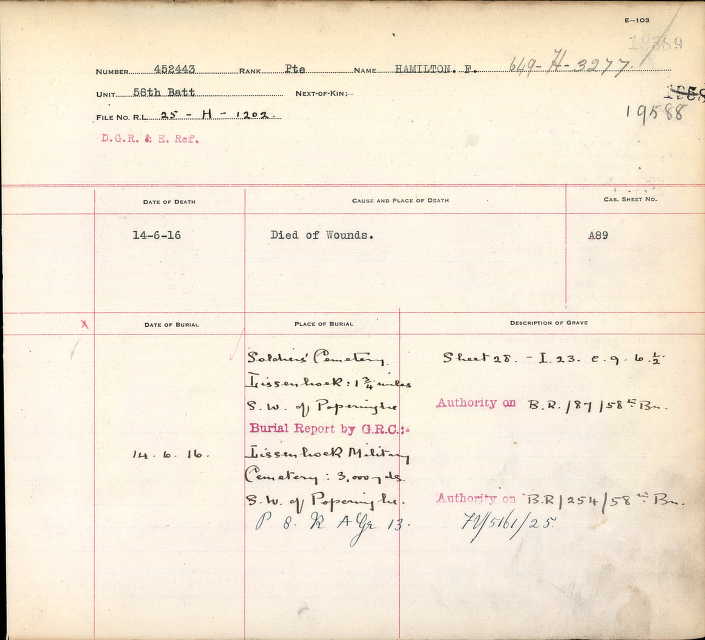 E-103
19389
NUMBER 452443 RANK Pte NAME HAMILTON. F. 649-H-3277.
UNIT 58th Batt NEXT-OF-KIN:-
19588
FILE NO. R.L. 25 - H - 1202.
D.G.R. & E. Ref.
DATE OF DEATH CAUSE AND PLACE OF DEATH CAS. SHEET NO.
14-6-16 Died of Wounds. A89
x DATE OF BURIAL PLACE OF BURIAL DESCRIPTION OF GRAVE
Soldiers' Cemetery Sheet 28. - I. 23. c. 9. 6 ½
Lissenhoek: 1 ¾ miles
S.W. of Poperinghe Authority on B.R./87/58th Bn.
Burial Report by G.R.C.:-
14. 6. 16. Lissenhoek Military
Cemetery: 3,000 yds
S.W. of Poperinghe. Authority on B.R/254/58th Bn.
P 8. R A Gr 13. /5161/25